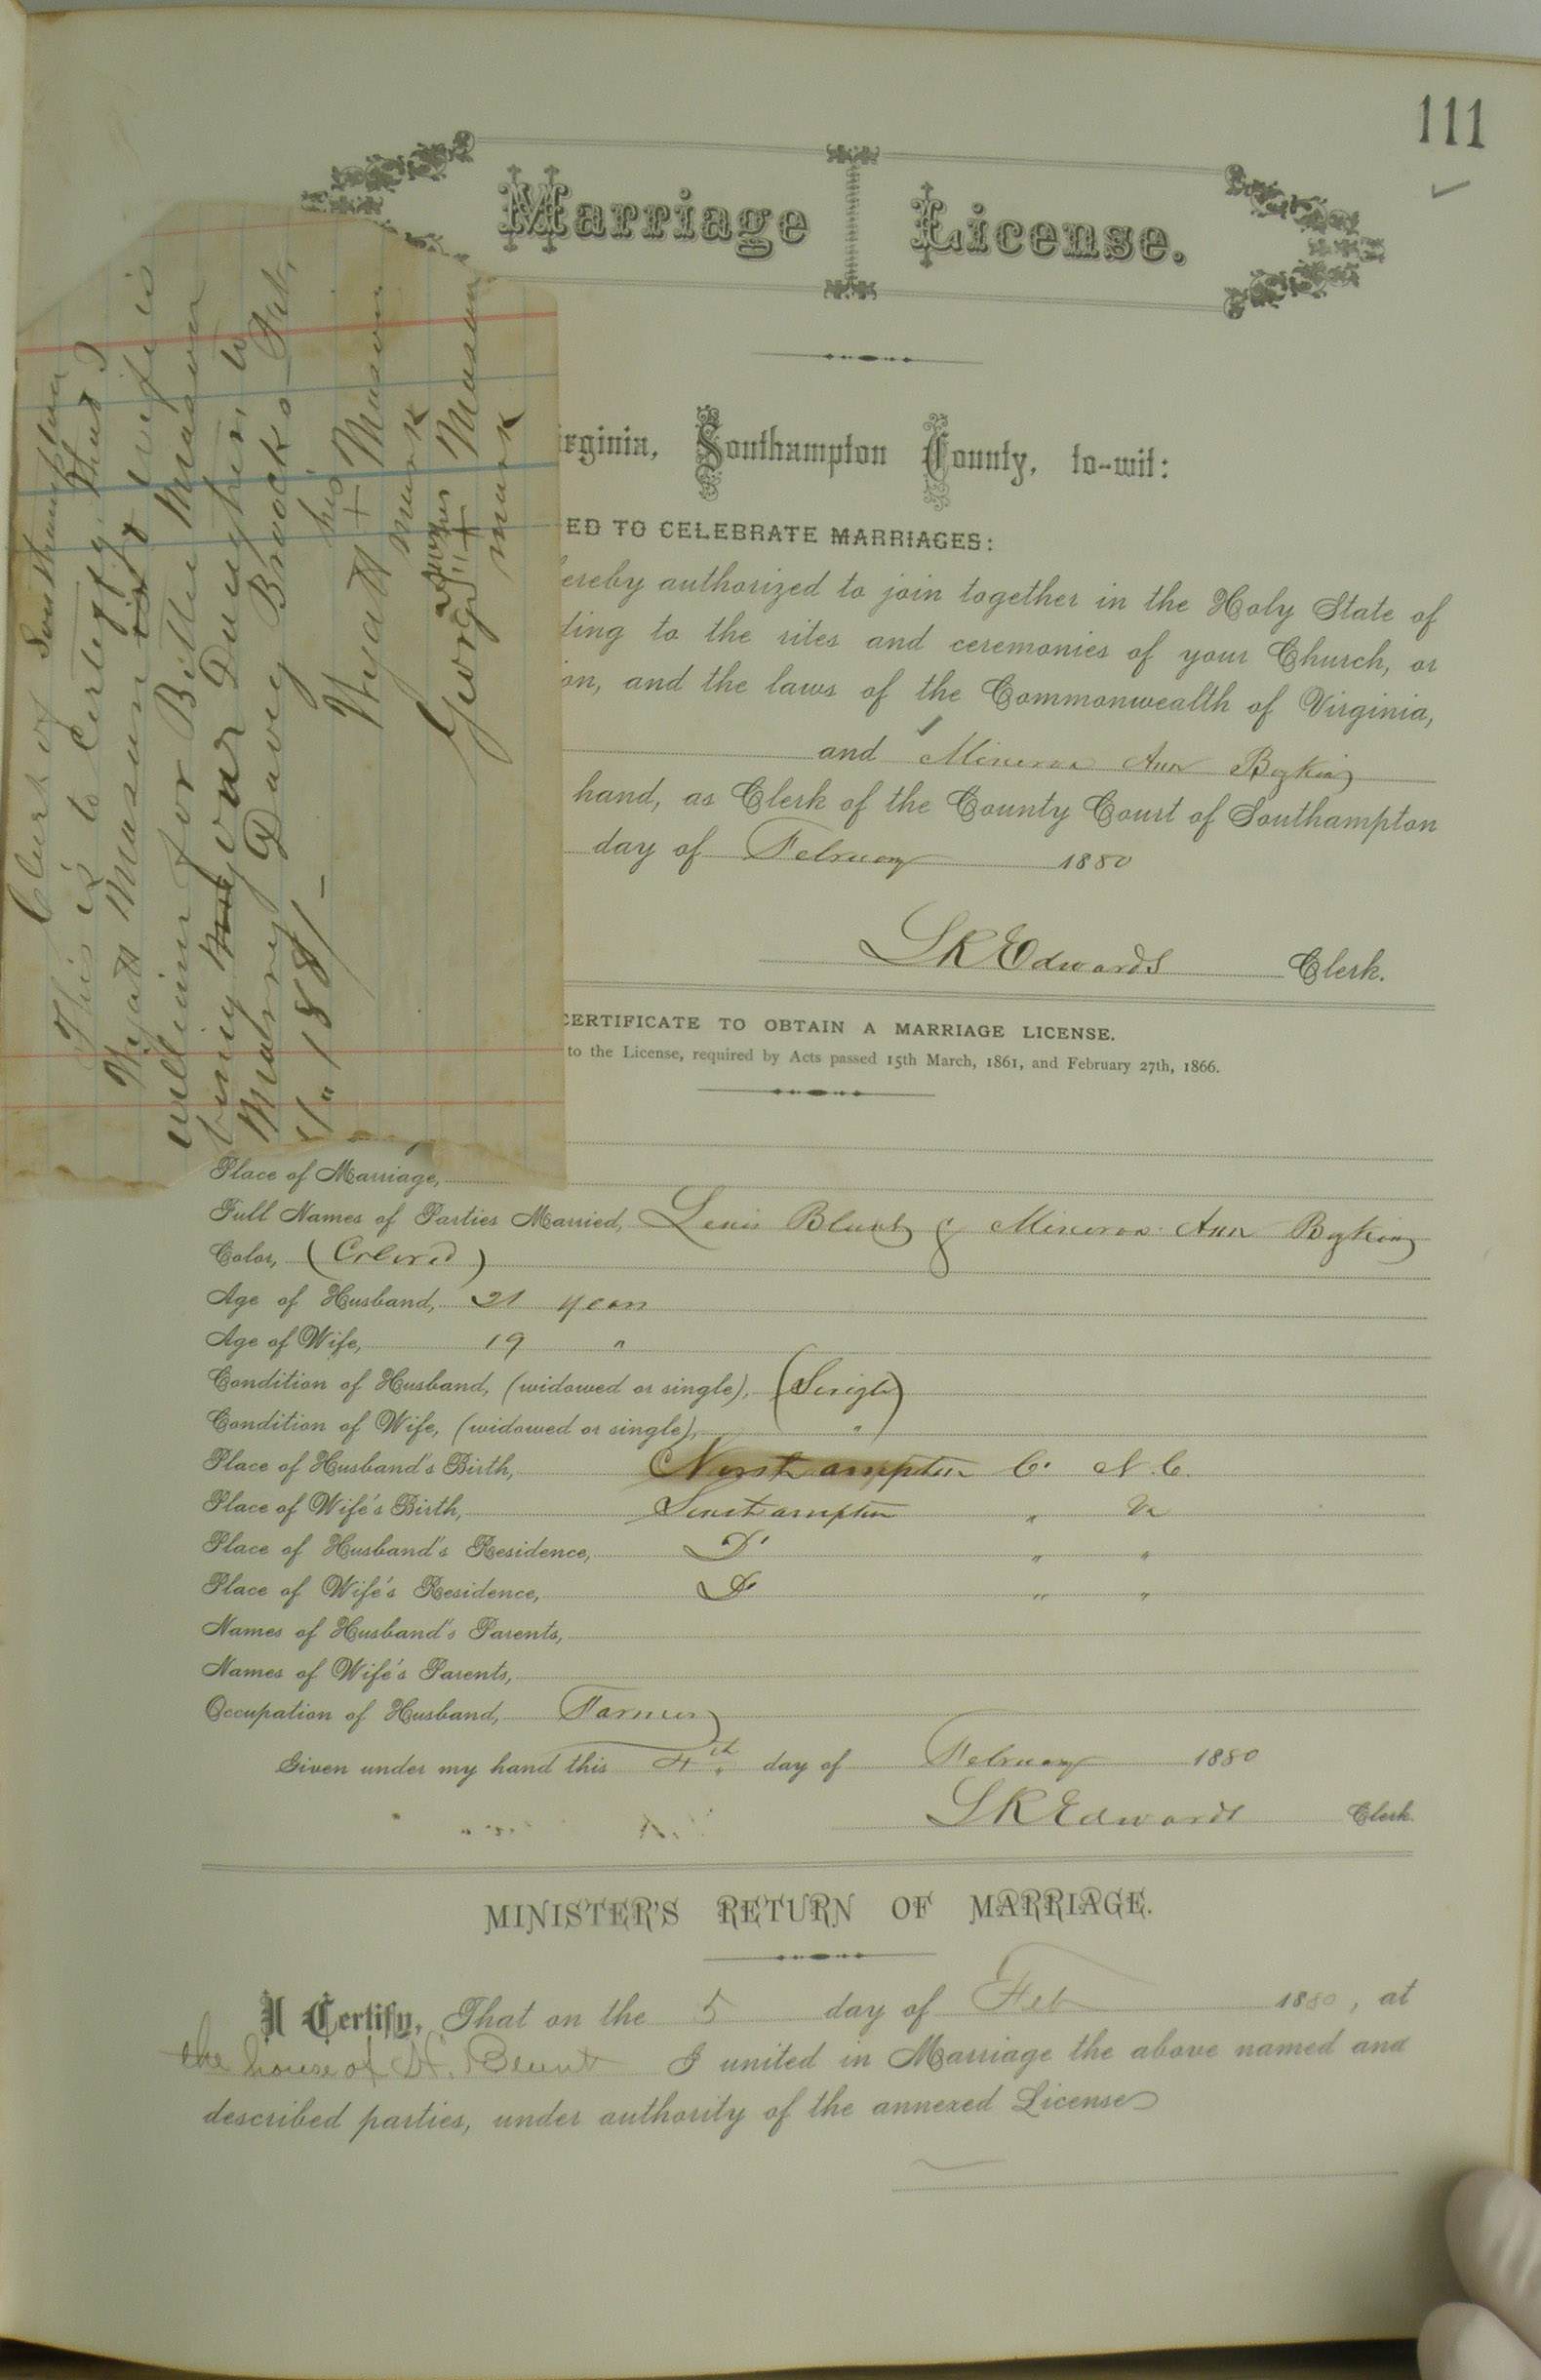 111
Marriage License.
Clerk of Southampton
This is to certify that
Wyatt Mason is wife is
willining for Bettie Mason
being my our Daughter to
Malrey Davey Brock Feb,
1" 1881-
his
Wyatt + Mason
mark
George + Mason
mark
irginia, Southampton County, to-wit:
ED TO CELEBRATE MARRIAGES:
ereby authorized to join together in the Holy State of
ding to the rites and ceremonies of your Church, or
on, and the laws of the Commonwealth of Virginia,
and Minerva Ann Boykin
hand, as Clerk of the County Court of Southampton
day of February 1880
LREdwards Clerk.
CERTIFICATE TO OBTAIN A MARRIAGE LICENSE.
to the License, required by Acts passed 15th March, 1861, and February 27th, 1866.
Place of Marriage,
Full Names of Parties Married, Lewis Blunt & Minerva Ann Boykin
Color, (Colored)
Age of Husband, 21 years
Age of Wife, 19 "
Condition of Husband, (widowed or single), (Single)
Condition of Wife, (widowed or single), "
Place of Husband's Birth, Northampton Co N.C.
Place of Wife's Birth, Southampton " Va
Place of Husband's Residence, Do " "
Place of Wife's Residence, Do " "
Names of Husband's Parents,
Names of Wife's Parents,
Occupation of Husband, Farmer
Given under my hand this 4th day of February 1880
LREdwards Clerk
MINISTER'S RETURN OF MARRIAGE.
I Certify, That on the 5 day of Feb 1880, at
the house of H. Blunt I united in Marriage the above named and
described parties, under authority of the annexed License